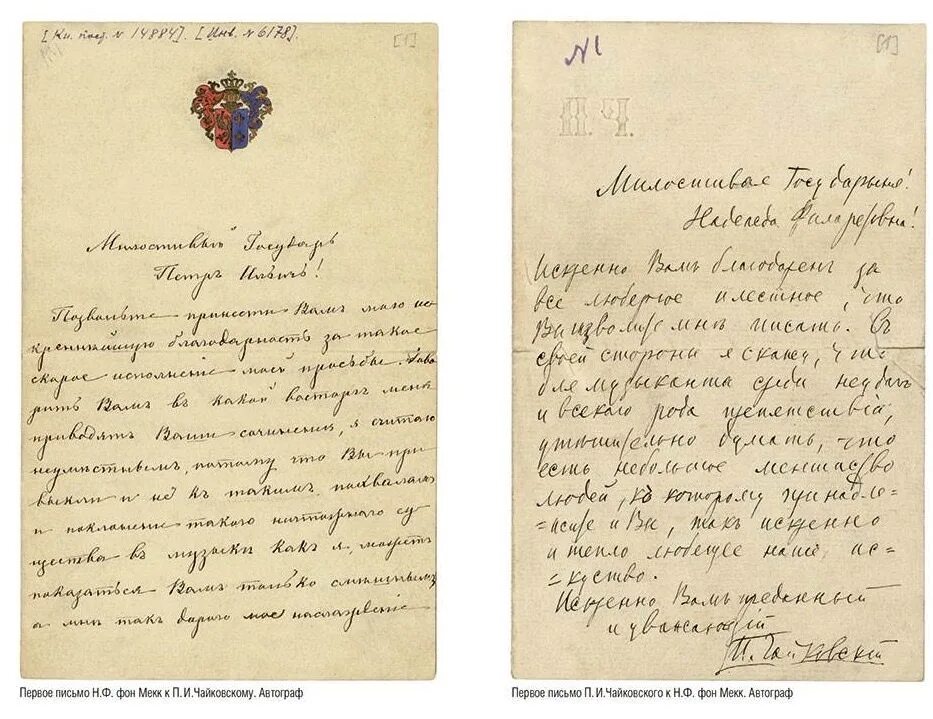 [Кн. пост. № 14884]. [Инв. № 6178].
[1]
Милостивый Государь
Петръ Ильичъ!
Позвольте принести Вамъ мою ис
креннѣйшую благодарность за такое
скорое исполненіе моей просьбы. Гово
рить Вамъ въ какой восторгъ меня
приводятъ Ваши сочиненія, я считаю
неумѣстнымъ, потому что Вы при
выкли и не къ такимъ похваламъ
и поклоненіе такого ничтожнаго су
щества въ музыкѣ какъ я, можетъ
показаться Вамъ только смѣшнымъ,
а мнѣ такъ дорого мое наслажденіе
Первое письмо Н.Ф. фон Мекк к П.И.Чайковскому. Автограф
№ 1
[1]
П. Ч.
Милостивая Государыня!
Надежда Филаретовна!
Искренно Вамъ благодаренъ за
все любезное и лестное, что
Вы изволите мнѣ писать. Съ
своей стороны я скажу, что
для музыканта среди неудачъ
и всякаго рода препятствій,
утѣшительно думать, что
есть небольшое меньшинство
людей, къ которому принадле-
=жите и Вы, такъ искренно
и тепло любящее наше ис-
=куство.
Искренно Вамъ преданный
и уважающій
П. Чайковскій
Первое письмо П.И.Чайковского к Н.Ф. фон Мекк. Автограф